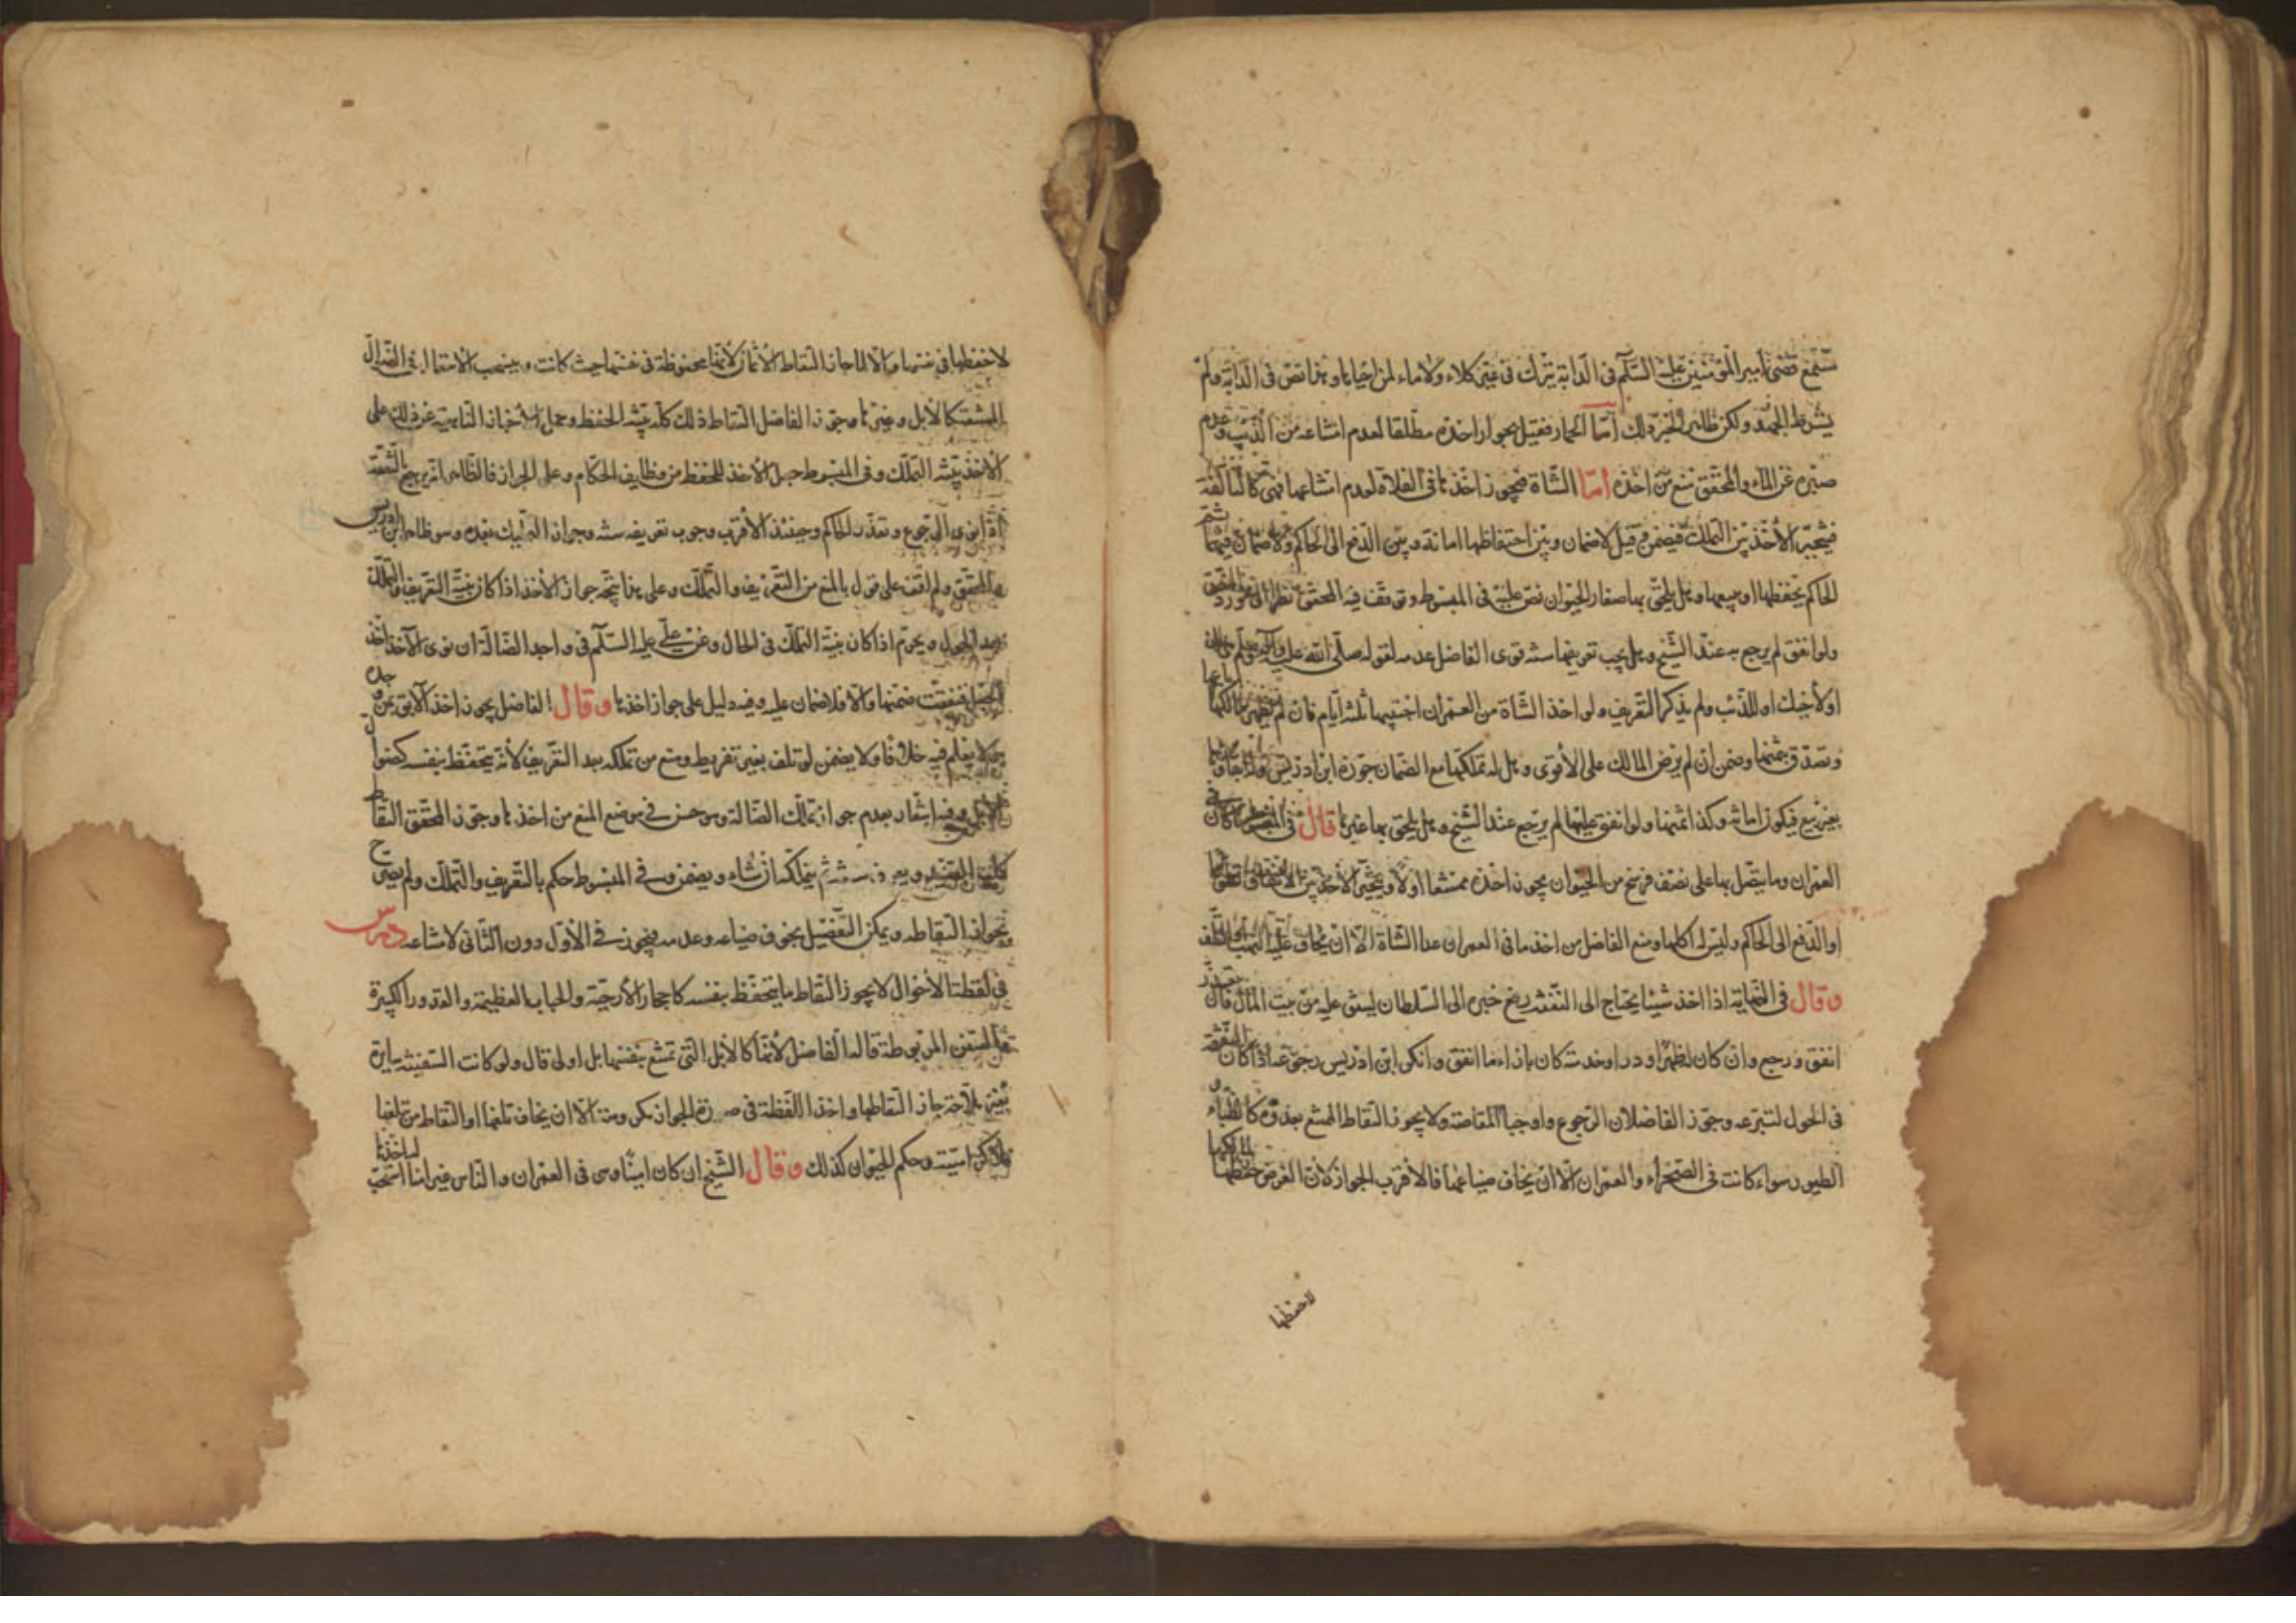 سمع قضى امير المؤمنين عليه السلم فى الدابة يترك فى غير كلاء ولا ماء لمن احياها وهذا نص فى الدابة ولم
يشرط الجهد ولكن ظاهر الخبر ذلك اما الحمار فقيل بجواز اخذه مطلقا لعدم امتناعه من الذئب وعدم
صبره عن الماء والمحقق منع من اخذه اما الشاة فيجوز اخذها فى الفلاة لعدم امتناعها فهى كالتالفة
فيتخير الاخذ بين التملك فيضمن وقيل لا ضمان وبين احتفاظها امانة وبين الدفع الى الحاكم ولا ضمان فيهما ثم
الحاكم يحفظها او يبيعها وهل يلحق بها صغار الحيوان نص عليه فى المبسوط وتوقف فيه المحقق نظرا الى مورد النص
ولو انفق لم يرجع به عند الشيخ وهل يجب تعريفها سنة قوى الفاضل عدمه لقوله صلى الله عليه واله وسلم هى لك
او لاخيك او للذئب ولم يذكر التعريف ولو اخذ الشاة من العمران احتبسها ثلثة ايام فان لم يظهر مالكها باعها
وتصدق بثمنها وضمن ان لم يرض المالك على الاقوى وهل له تملكها مع الضمان جوزه ابن ادريس وله ابقاؤها
بغير بيع فيكون امانة وكذا ثمنها ولو انفق عليها لم يرجع عند الشيخ وهل يلحق بها غيرها قال فى المبسوط ما كان فى
العمران وما يتصل بها على نصف فرسخ من الحيوان يجوز اخذه ممتنعا اولا ويتخير الاخذ بين الانفاق تطوعا
او الدفع الى الحاكم وليس له اكلها ومنع الفاضل من اخذ ما فى العمران عدا الشاة الا ان يخاف عليه النهب او التلف
وقال فى النهاية اذا اخذ شيئا يحتاج الى النفقة رفع خبره الى السلطان لينفق عليه من بيت المال فان تعذر
انفق ورجع وان كان لظهرا ودر او خدمة كان بازاء ما انفق وانكر ابن ادريس رجوعه اذا كان النفقة
فى الحول لتبرعه وجوز الفاضلان الرجوع واوجبا المقاصة ولا يجوز التقاط الممتنع بعدوه كالظباء و
الطيور سواء كانت فى الصحراء والعمران الا ان يخاف ضياعها فالاقرب الجواز لان الغرض حفظها لمالكها
لا حفظها
لا حفظها فى نفسها والا لما جاز التقاط الاثمان لانها محفوظة فى نفسها حيث كانت وينسحب الاحتمال فى الضوال
الممتنعة كالابل وغيرها وجوز الفاضل التقاط ذلك كله بنية الحفظ وحمل الاخبار الناهية عن ذلك على
الاخذ بنية التملك وفى المبسوط جعل الاخذ للحفظ من وظايف الحكام وعلى الجواز فالظاهر انه يرجع بالنفقة
اذا نوى الرجوع وتعذر الحاكم وحينئذ الاقرب وجوب تعريفه سنة وجواز التملك بعده وهو ظاهر ابن ادريس
والمحقق ولم اقف على قول بالمنع من التعريف والتملك وعلى هذا يتجه جواز الاخذ اذا كان بنية التعريف والتملك
بعد الحول ويحرم اذا كان بنية التملك فى الحال وعن على عليه السلم فى واجد الضالة ان نوى الاخذ اخذ
الجعل فنفقت ضمنها والا فلا ضمان عليه وفيه دليل على جواز اخذها وقال الفاضل يجوز اخذ الآبق لمن وجده
ولا يعلم فيه خلافا ولا يضمن لو تلف بغير تفريط ومنع من تملكه بعد التعريف لانه يتحفظ بنفسه كضوال
الابل وفيه اشعار بعدم جواز تملك الضالة وهو حسن فى موضع المنع من اخذها وجوز المحقق التقاط
كلب الصيد ويعرفه سنة ثم يتملكه ان شاء ويضمن وفى المبسوط حكم بالتعريف والتملك ولم يصرح
بجواز التقاطه ويمكن التفصيل بخوف ضياعه وعدمه فيجوز فى الاول دون الثانى لامتناعه درس
فى لقطة الاحوال لا يجوز التقاط ما يتحفظ بنفسه كاحجار الارحية والحباب العظيمة والقدور الكبيرة
والسفن المربوطة قاله الفاضل لانها كالابل التى تمتنع بنفسها بل اولى قال ولو كانت السفينة سايرة
بغير ملاحة جاز التقاطها واخذ اللقطة فى صورة الجواز مكروهة الا ان يخاف تلفها او التقاط من يتلفها
فلا كراهية وحكم الحيوان كذلك وقال الشيخ ان كان امينا وهى فى العمران والناس غير امنا استحب له اخذها